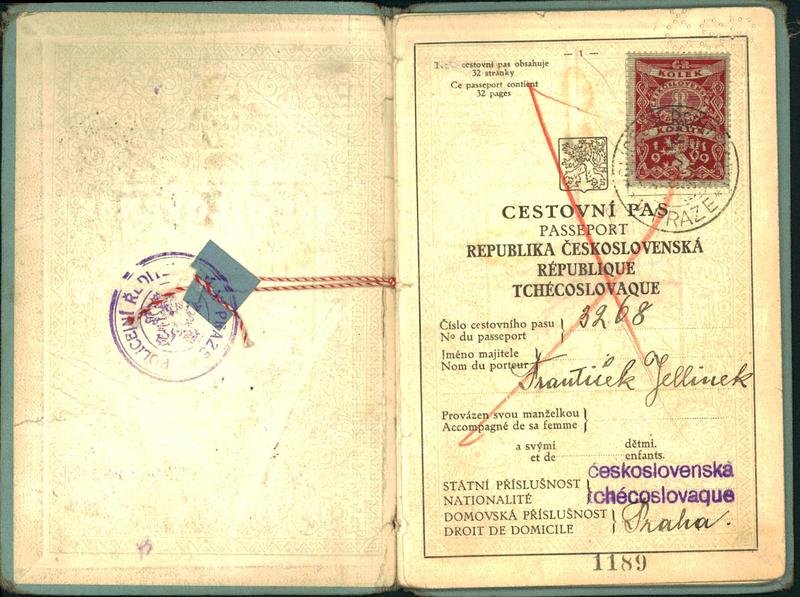 POLICEJNÍ ŘEDI
PRAZE
— 1 —
cestovní pas obsahuje
32 stránky
Ce passeport contient
32 pages
KOLEK
KORUNA
1919
PRAZE
CESTOVNÍ PAS
PASSEPORT
REPUBLIKA ČESKOSLOVENSKÁ
RÉPUBLIQUE
TCHÉCOSLOVAQUE
Číslo cestovního pasu
No du passeport
3208
Jméno majitele
Nom du porteur
František Jellinek
Provázen svou manželkou
Accompagné de sa femme
a svými dětmi.
et de enfants.
STÁTNÍ PŘÍSLUŠNOST
NATIONALITÉ
československá
tchécoslovaque
DOMOVSKÁ PŘÍSLUŠNOST
DROIT DE DOMICILE
Praha.
1189